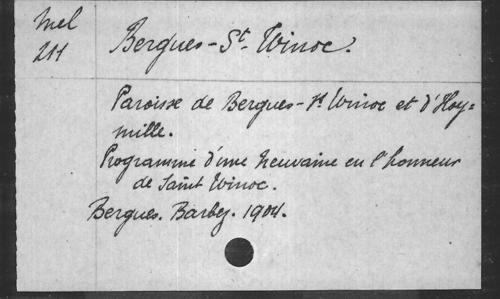 Mel
211
Bergues-St. Winoc.
Paroisse de Bergues-St Winoc et d'Hoy-
mille.
Programme d'une Neuvaine en l'honneur
de Saint Winoc.
Bergues. Barbez. 1904.